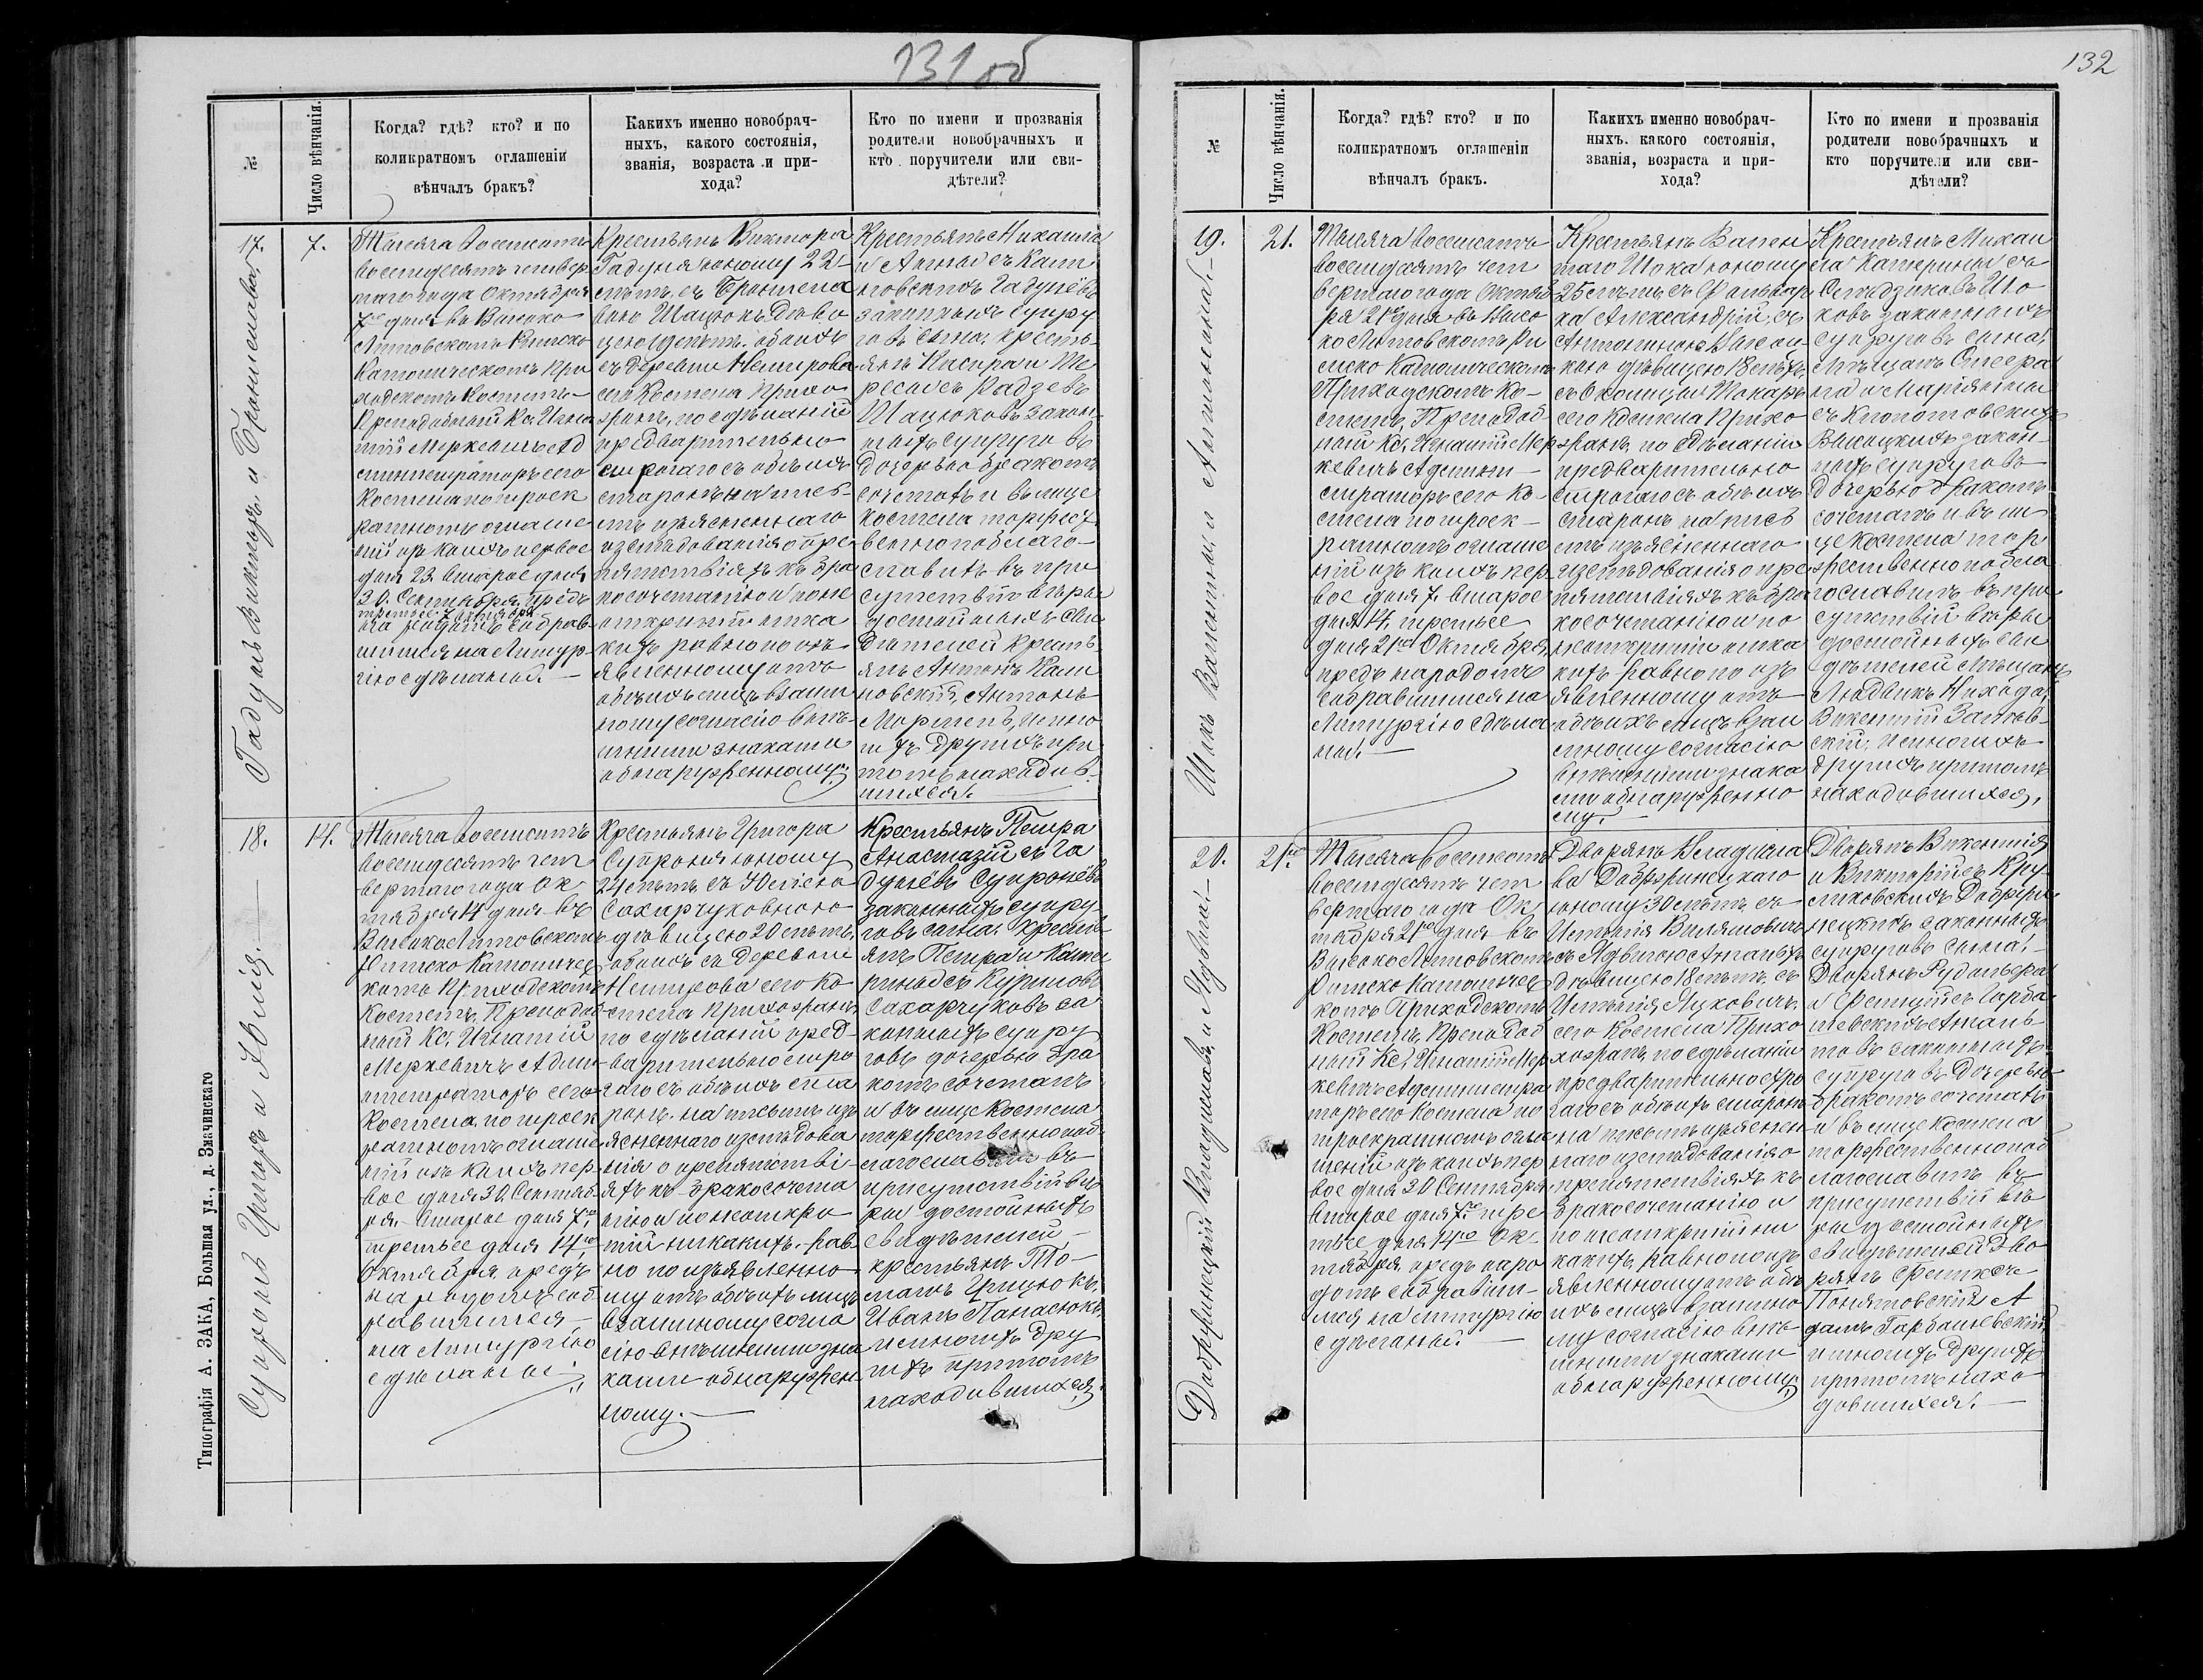 131 об
№
Число вѣнчанія.
Когда? гдѣ? кто? и по
коликратномъ оглашеніи
вѣнчалъ бракъ?
Какихъ именно новобрач-
ныхъ, какого состоянія,
званія, возраста и при-
хода?
Кто по имени и прозванія
родители новобрачныхъ и
кто поручители или сви-
дѣтели?
17.
Гадунь Викторъ и Бронислава.
7.
Тысяча восемсотъ
восемдесятъ четвер
таго года Октября
7го дня въ Высоко
Литовскомъ Римско
Католическомъ При
ходскомъ Костелѣ
Преподобный Кс. Игна
тій Меркевичъ Ад
министраторъ сего
Костела по троек
ратномъ оглаше
ніи изъ коихъ первое
дня 23. второе дня
30. Сентября, предъ
третье 7 октября
народомъ собрав
шимся на Литур
гію сдѣланы.
Крестьянъ Виктора
Гадуня юношу 22-
лѣтъ, съ Брониславою
Шацюкъ Дѣви
цею лѣтъ. обоихъ
съ деревни Немирова
сего Костела Прихо
жанъ, по сдѣланіи
предварительно
строгаго съ обѣихъ
сторонъ на пись-
мѣ изъясненнаго
изслѣдованія о пре
пятствіяхъ къ бра
косочетанію и по не
открытіи ника
кихъ равно по изъ
явленному отъ
обоихъ лицъ взаим
ному согласію внѣ
шними знаками
обнаруженному;
Крестьянъ Михаила
и Анны съ Кали
новскихъ Гадунёвъ
законныхъ супру
говъ сына, кресть
янъ Каспра и Те
ресы съ Радзевъ
Шацюковъ закон
ныхъ супруговъ
Дочерью бракомъ
сочеталъ и въ лице
Костела торжест-
венно поблаго-
словилъ въ при
сутствіи вѣры
достойныхъ Сви
дѣтелей кресть
янъ Антонъ Кали
новскій, Антонъ
и мно
гихъ другихъ при
томъ находив
шихся.
18.
Супронь Григоръ и Юлія.
14.
Тысяча восемсотъ
восемдесятъ чет
вертаго года Ок
тября 14 дня въ
Высоко Литовскомъ
Римско Католичес
комъ Приходскомъ
Костелѣ, Преподоб
ный Кс. Игнатій
Меркевичъ Адми
нистраторъ сего
Костела, по троек
ратномъ оглаше
ніи изъ коихъ пер
вое дня 30. Сентяб
ря. второе дня 7го,
третье дня 14го,
Октября предъ
народомъ соб
равшимся
на Литургію
сдѣланы;
Крестьянъ Григора
Супроня юношу
24 лѣтъ, съ Юліею
Сахарчуковною
дѣвицею 20 лѣтъ,
обоихъ съ Деревни
Немирова сего Ко
стела прихожанъ,
по сдѣланіи пред
варительно стро
гаго съ обѣихъ сто
ронъ на письмѣ изъ
ясненнаго изслѣдова
нія о препятстві
яхъ къ бракосочета
нію и по неоткры
тіи никакихъ рав
но по изъявленно
му отъ обоихъ лицъ
взаимному согла
сію внѣшними зна
ками обнаружен
ному.
Крестьянъ Петра
Анастазіи съ Га
дунёвъ Супронёвъ
законныхъ супру
говъ сына, кресть
янъ Петра и Кате
рины съ Куриловъ
Сахарчуковъ за
конныхъ супру
говъ дочерью бра
комъ сочеталъ
и въ лице Костела
торжественно поб
лагословилъ въ
присутствіи вѣ
ры достойныхъ
свидѣтелей
крестьянъ То
машъ Грицюкъ,
Иванъ Панасюкъ,
и многихъ дру
гихъ притомъ
находившихся.
Типографія А. ЗАКА, Большая ул., д. Значинскаго
132
№
Число вѣнчанія.
Когда? гдѣ? кто? и по
коликратномъ оглашеніи
вѣнчалъ бракъ.
Какихъ именно новобрач-
ныхъ. какого состоянія,
званія, возраста и при-
хода?
Кто по имени и прозванія
родители новобрачныхъ и
кто поручители или сви-
дѣтели?
19.
Шокъ Валентый и Антонина.
21.
Тысяча восемсотъ
восемдесятъ чет
вертаго года Октяб
ря 21го дня въ Высо
ко Литовскомъ Ри
мско Католическомъ
Приходскомъ Ко-
стелѣ, Преподоб
ный Кс. Игнатій Мер
кевичъ Админи-
страторъ сего Ко-
стела по троек-
ратномъ оглаше
ніи изъ коихъ пер
вое дня 7. второе
дня 14. третье
дня 21го Октября,
предъ народомъ
собравшимся на
Литургію сдѣла
ны.
Крестьянъ Вален
таго Шока юношу
25 лѣтъ, съ Фольвар
ка Александріи, съ
Антониною Высоц
кою дѣвицею 18 лѣтъ,
съ Околицы Токаръ
сего Костела Прихо
жанъ, по сдѣланіи
предварительно
строгаго съ обѣихъ
сторонъ на пись
мѣ изъясненнаго
изслѣдованія о пре
пятствіяхъ къ бра
косочетанію и по
неоткрытіи ника
кихъ равно по изъ
явленному отъ
обоихъ лицъ взаи
мному согласію
внѣшними знака
ми обнаруженно
му.
Крестьянъ Михаи
ла Катерины съ
Шо
ковъ законныхъ
супруговъ сына,
Мѣщанъ Стефа
на и Маріянны
съ Клопотовскихъ
Высоцкихъ закон
ныхъ супруговъ
Дочерью бракомъ
сочеталъ и въ ли
цѣ Костела тор
жественно побла
гословилъ въ при
сутствіи вѣры
достойныхъ сви
дѣтелей Мѣщанъ
Людвикъ Находа,
Викентій
и многихъ
другихъ притомъ
находившихся.
20.
Добржинецкій Владиславъ и Ядвига.
21го
Тысяча восемсотъ
восемдесятъ чет
вертаго года Ок
тября 21го дня въ
Высоко Литовскомъ
Римско Католичес
комъ Приходскомъ
Костелѣ, Преподоб
ный Кс. Игнатій Мер
кевичъ Администра
торъ сего Костела по
троекратномъ огла
шеніи изъ коихъ пер
вое дня 30 Сентября
второе дня 7го тре
тье дня 14го Ок
тября, предъ наро
домъ собравшим-
мся на литургію
сдѣланы.
Дворянъ Владисла
ва Добржинецкаго
юношу 30 лѣтъ, съ
Имѣнія Вилямовичъ
съ Ядвигою Аттанъ
дѣвицею 18 лѣтъ, съ
Имѣнія Луковичъ,
сего Костела Прихо
жанъ, по сдѣланіи
предварительно стро
гаго съ обѣихъ сторонъ
на письмѣ изъяснен
наго изслѣдованія о
препятствіяхъ къ
бракосочетанію и
по неоткрытіи ни
какихъ равно по изъ
явленному отъ обо
ихъ лицъ взаимно
му согласію внѣ
шними знаками
обнаруженному.
Дворянъ Викентія
и Викторіи съ Кру
ликовскихъ Добржи
нецкихъ законныхъ
супруговъ сына,
Дворянъ Рудольфа
и Фелиціи съ Гарба
шевскихъ
законныхъ
супруговъ Дочерью
бракомъ сочеталъ
и въ лице Костела
торжественно поб
лагословилъ въ
присутствіи вѣ
ры достойныхъ
свидѣтелей Дво
рянъ Феликсъ
Понятовскій А
дамъ Гарбашевскій
и многихъ другихъ
притомъ нахо
дившихся.